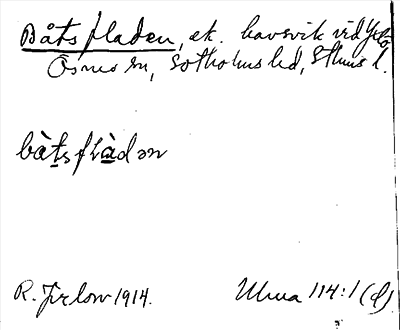 Båtsfladen, ek. havsvik vid Yxlö,
Ösmo sn, Sotholms hd, Sthms l.
bàtsflàdən
R. Jirlow 1914.
Ulma 114:1 (d)